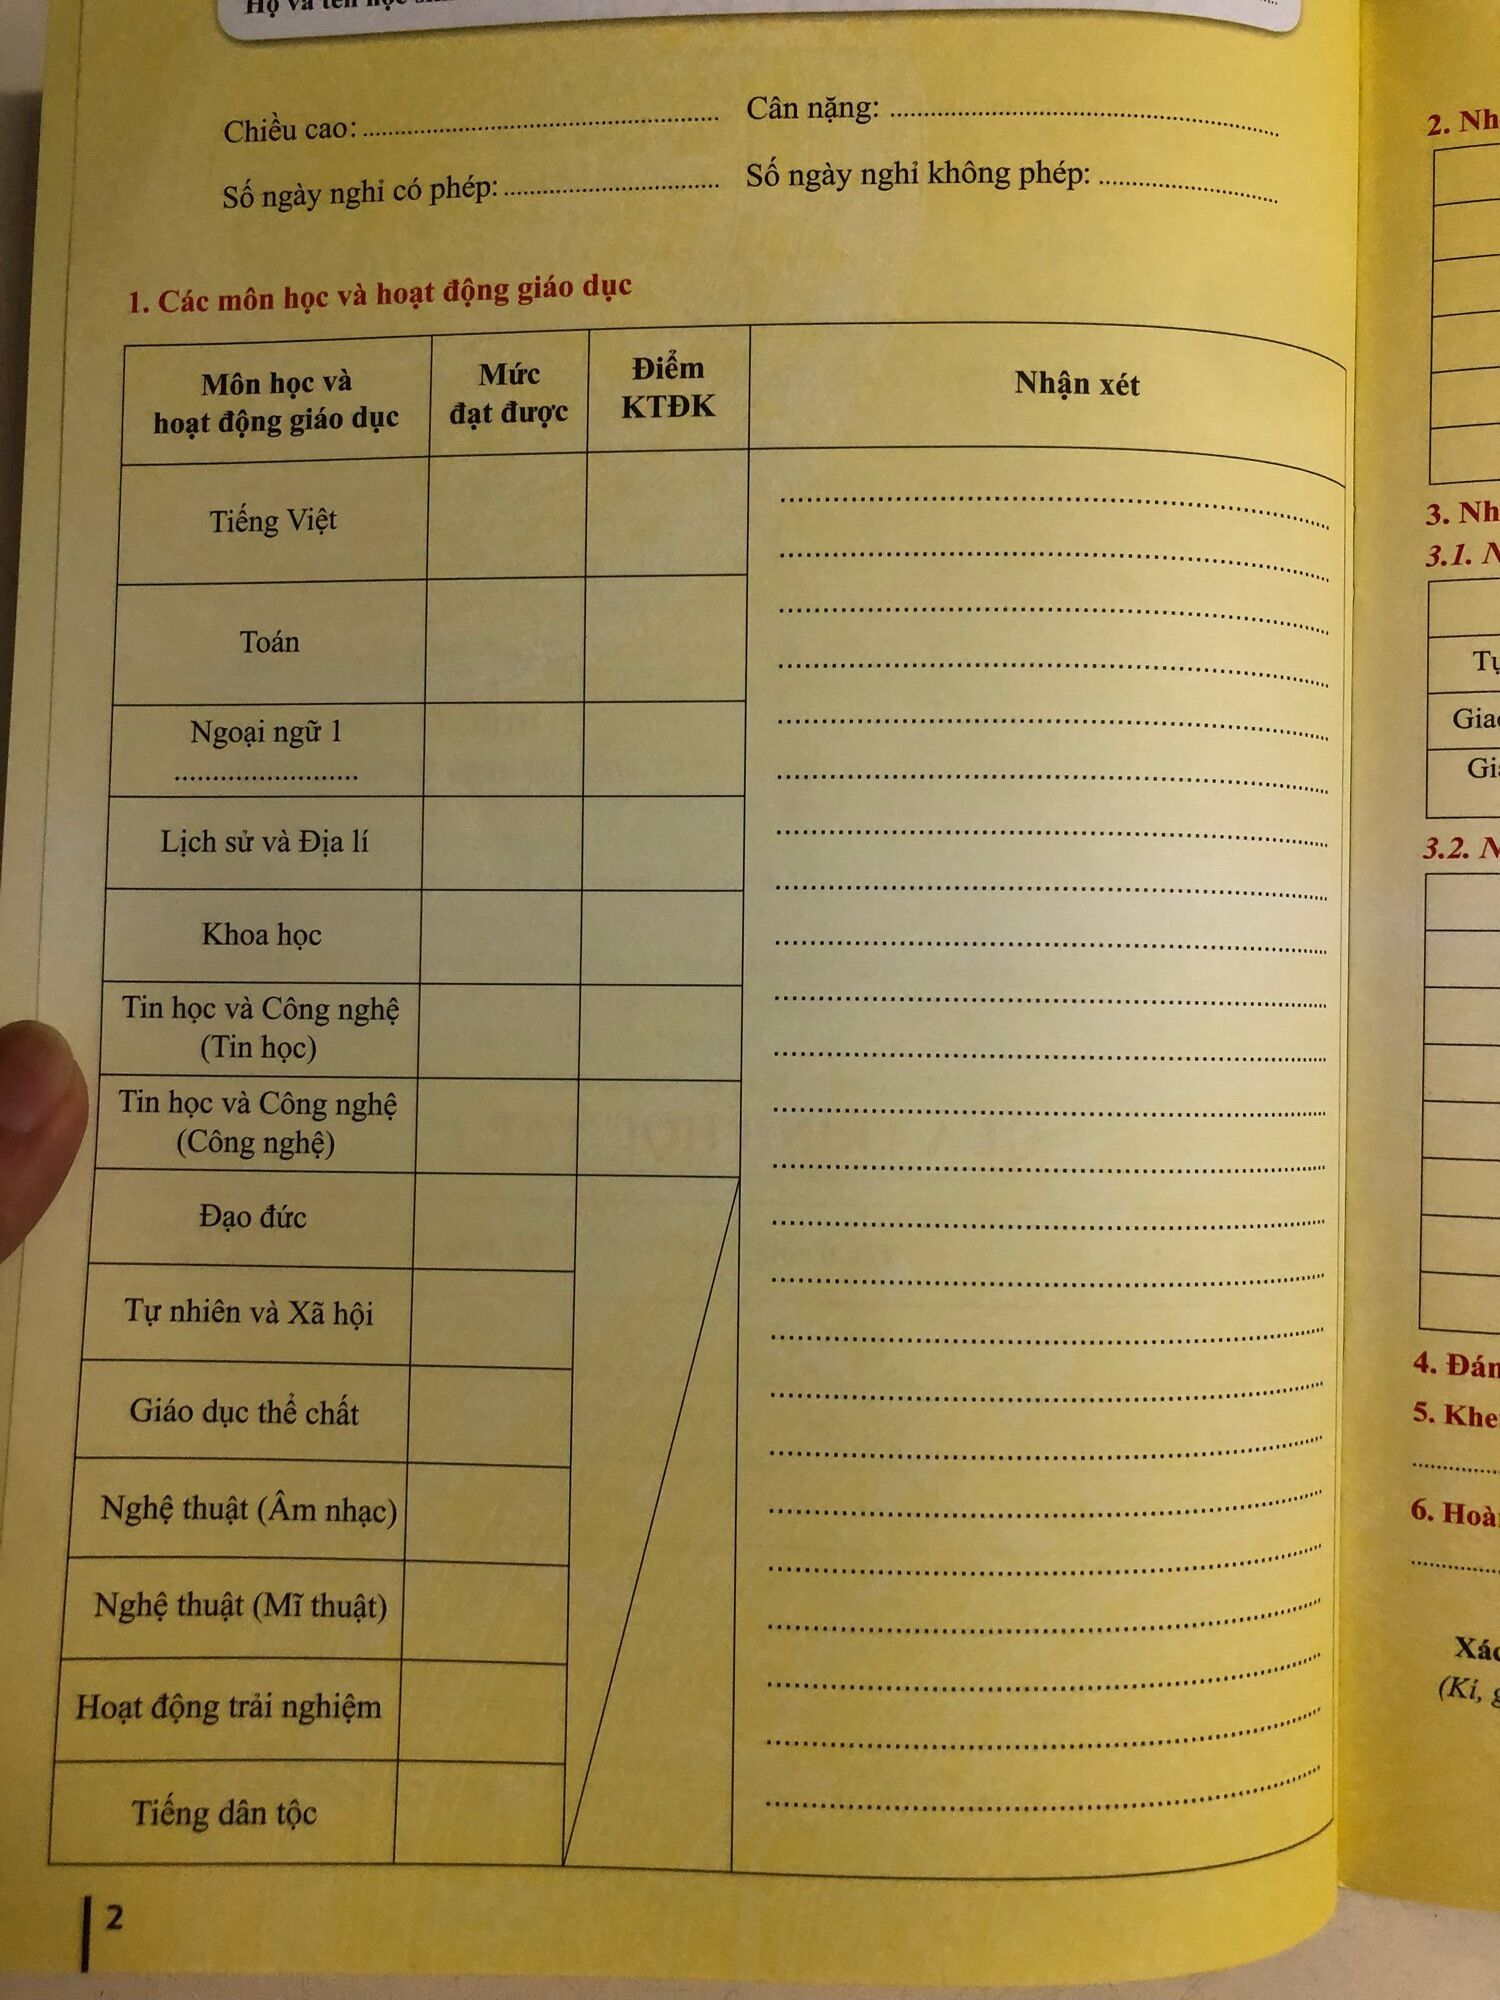 Họ và tên học
Chiều cao: Cân nặng:
Số ngày nghỉ có phép: Số ngày nghỉ không phép:
1. Các môn học và hoạt động giáo dục
Môn học và
hoạt động giáo dục
Mức
đạt được
Điểm
KTĐK
Nhận xét
Tiếng Việt
Toán
Ngoại ngữ 1
Lịch sử và Địa lí
Khoa học
Tin học và Công nghệ
(Tin học)
Tin học và Công nghệ
(Công nghệ)
Đạo đức
Tự nhiên và Xã hội
Giáo dục thể chất
Nghệ thuật (Âm nhạc)
Nghệ thuật (Mĩ thuật)
Hoạt động trải nghiệm
Tiếng dân tộc
2
2.
3.
3.1.
3.2.
4.
5.
6.
(Kí,